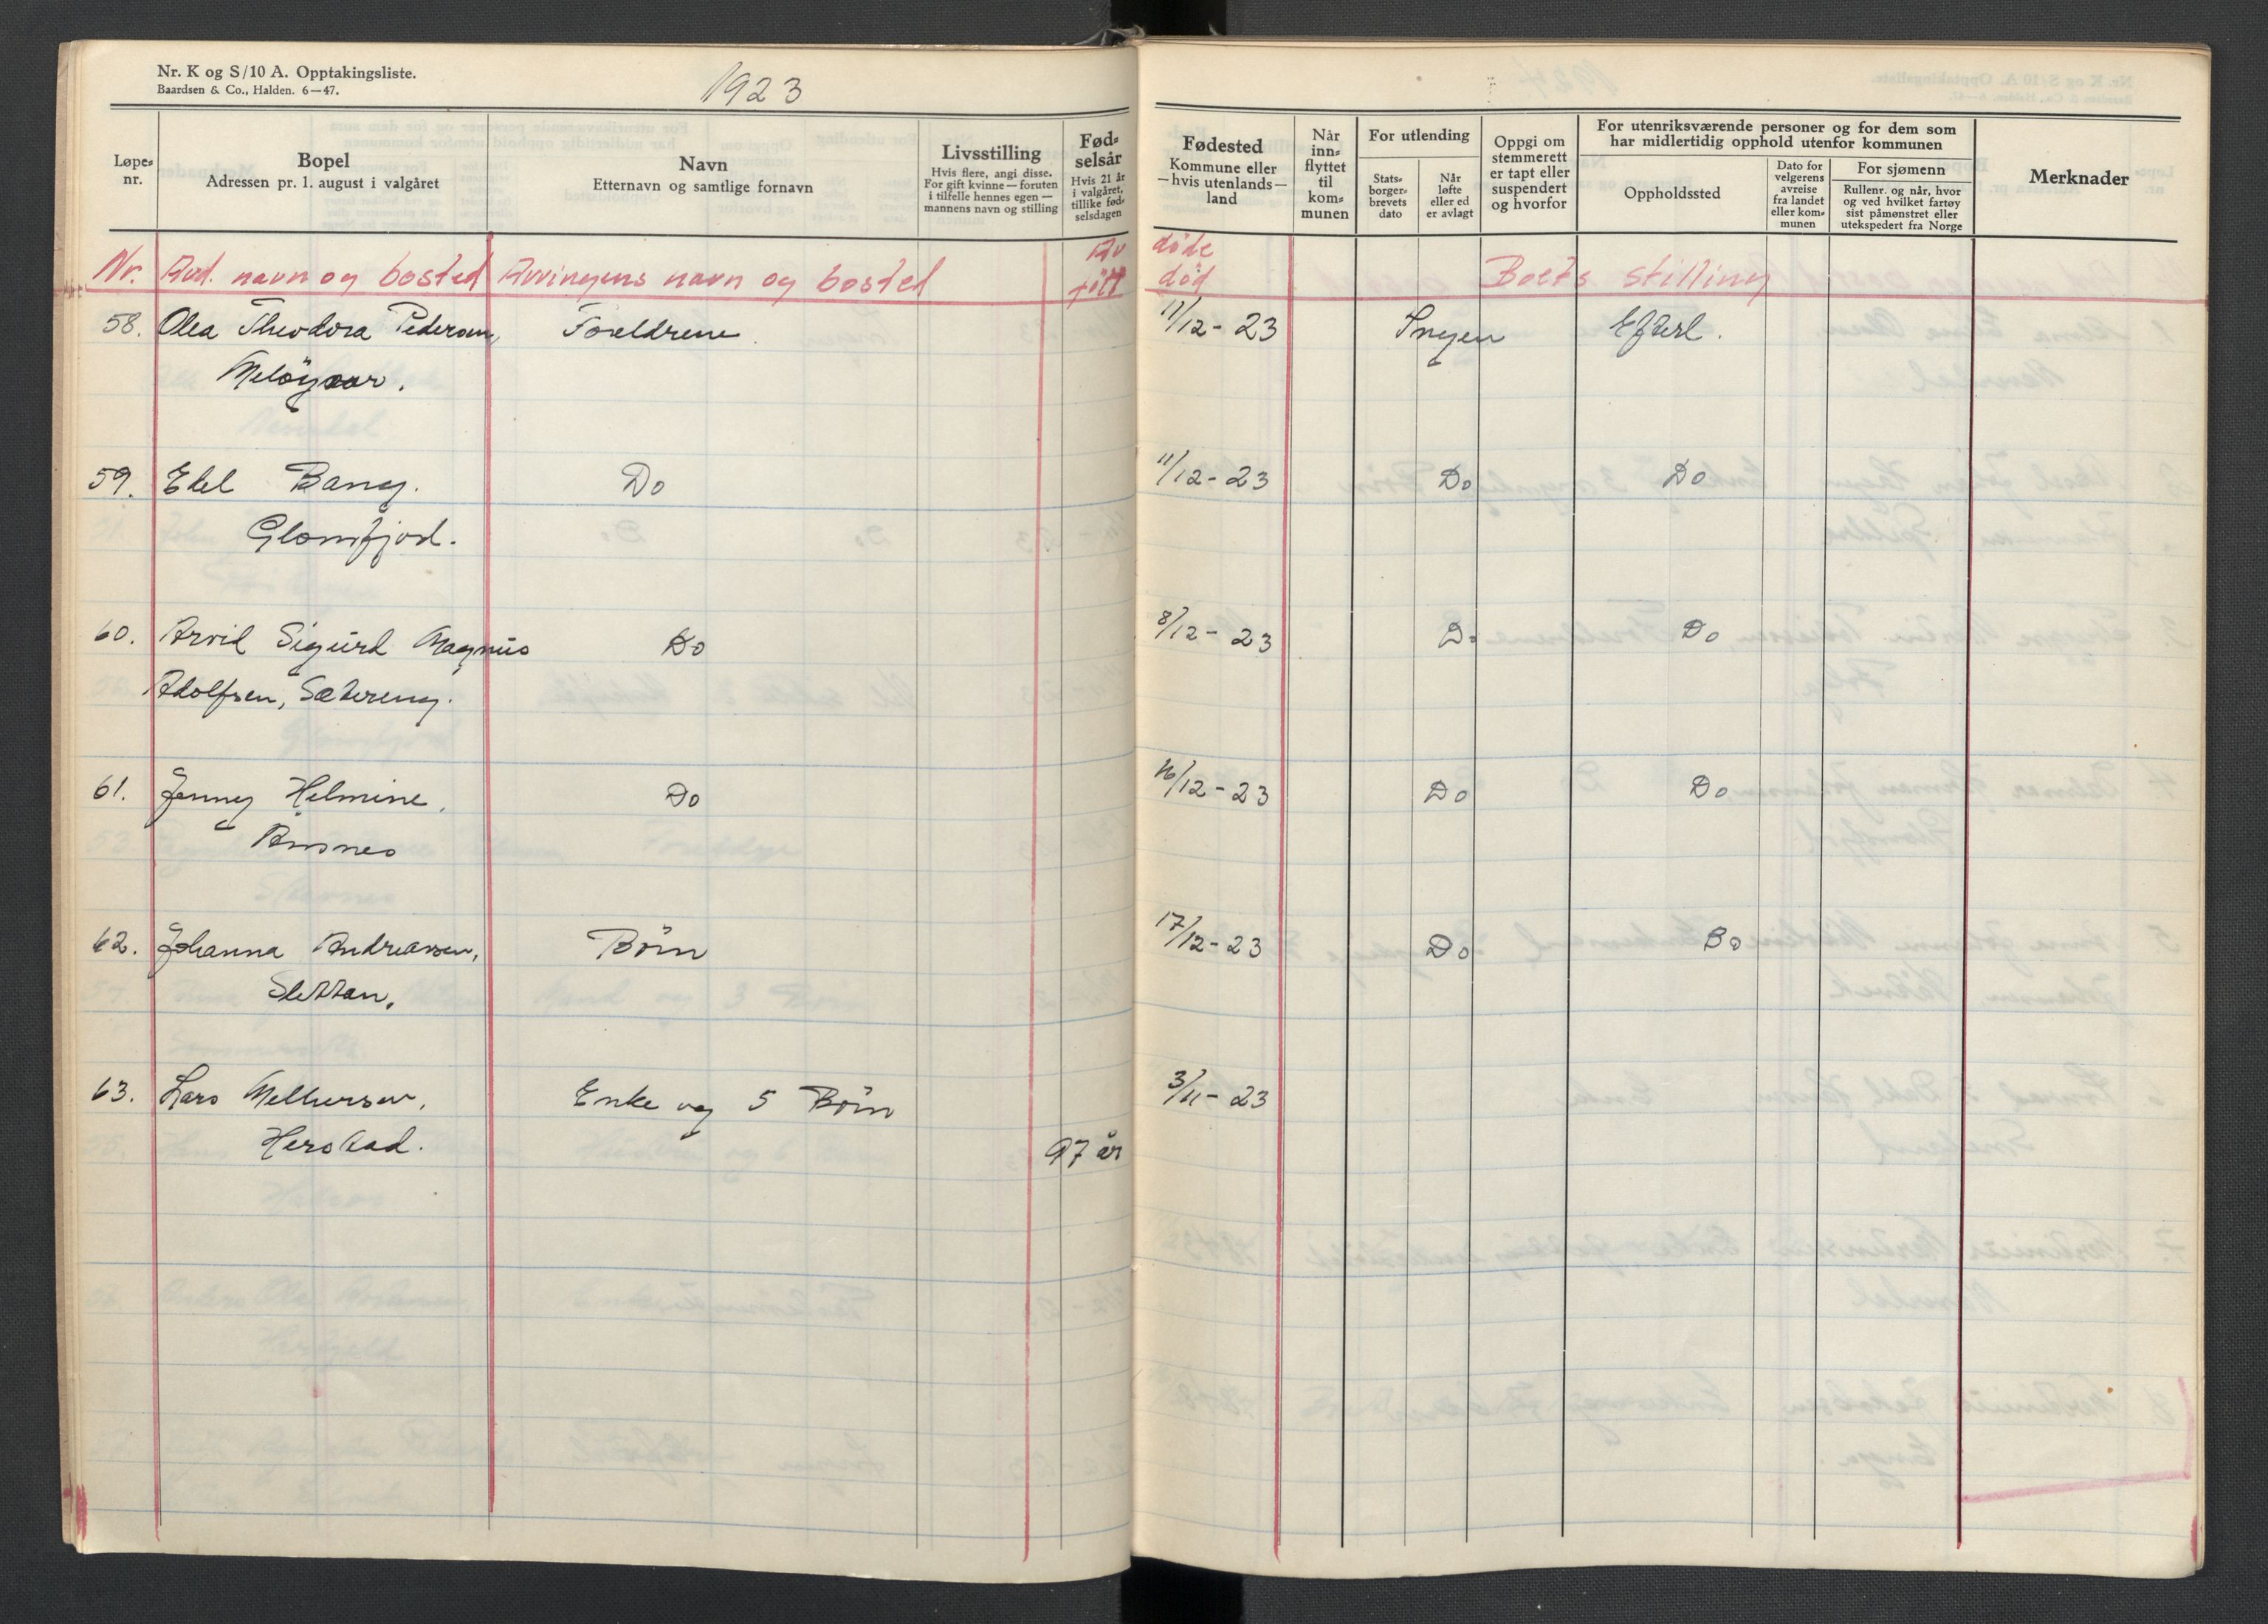 Nr. K og S/10 A. Opptakingsliste.
Baardsen & Co., Halden. 6—47.
1923
Løpe-
nr.
Bopel
Adressen pr. 1. august i valgåret
Navn
Etternavn og samtlige fornavn
Livsstilling
Hvis flere, angi disse.
For gift kvinne — foruten
i tilfelle hennes egen —
mannens navn og stilling
Fød-
selsår
Hvis 21 år
i valgåret,
tillike fød-
selsdagen
Fødested
Kommune eller
— hvis utenlands —
land
Når
inn-
flyttet
til
kom-
munen
For utlending
Stats-
borger-
brevets
dato
Når
løfte
eller ed
er avlagt
Oppgi om
stemmerett
er tapt eller
suspendert
og hvorfor
For utenriksværende personer og for dem som
har midlertidig opphold utenfor kommunen
Oppholdssted
Dato for
velgerens
avreise
fra landet
eller kom-
munen
For sjømenn
Rullenr. og når, hvor
og ved hvilket fartøy
sist påmønstret eller
utekspedert fra Norge
Merknader
Nr. Avd. navn og bosted Arvingens navn og bosted År født døde død Boets stilling
58. Olea Theodora Pedersen, Foreldrene 11/12 - 23 Ingen Efterl.
Meløyvær.
59. Edel Bang. Do 11/12 - 23 Do Do
Glomfjord.
60. Arvid Sigurd Magnus Do 8/12 - 23 Do Do
Adolfsen, Sætereng.
61. Jenny Helmine, Do 16/12 - 23 Do Do
Åmnes
62. Johanna Andreassen, Börn 17/12 - 23 Do Do
Slettan.
63. Lars Melkersen, Enke og 5 Börn 3/11 - 23
Herstad. 97 år